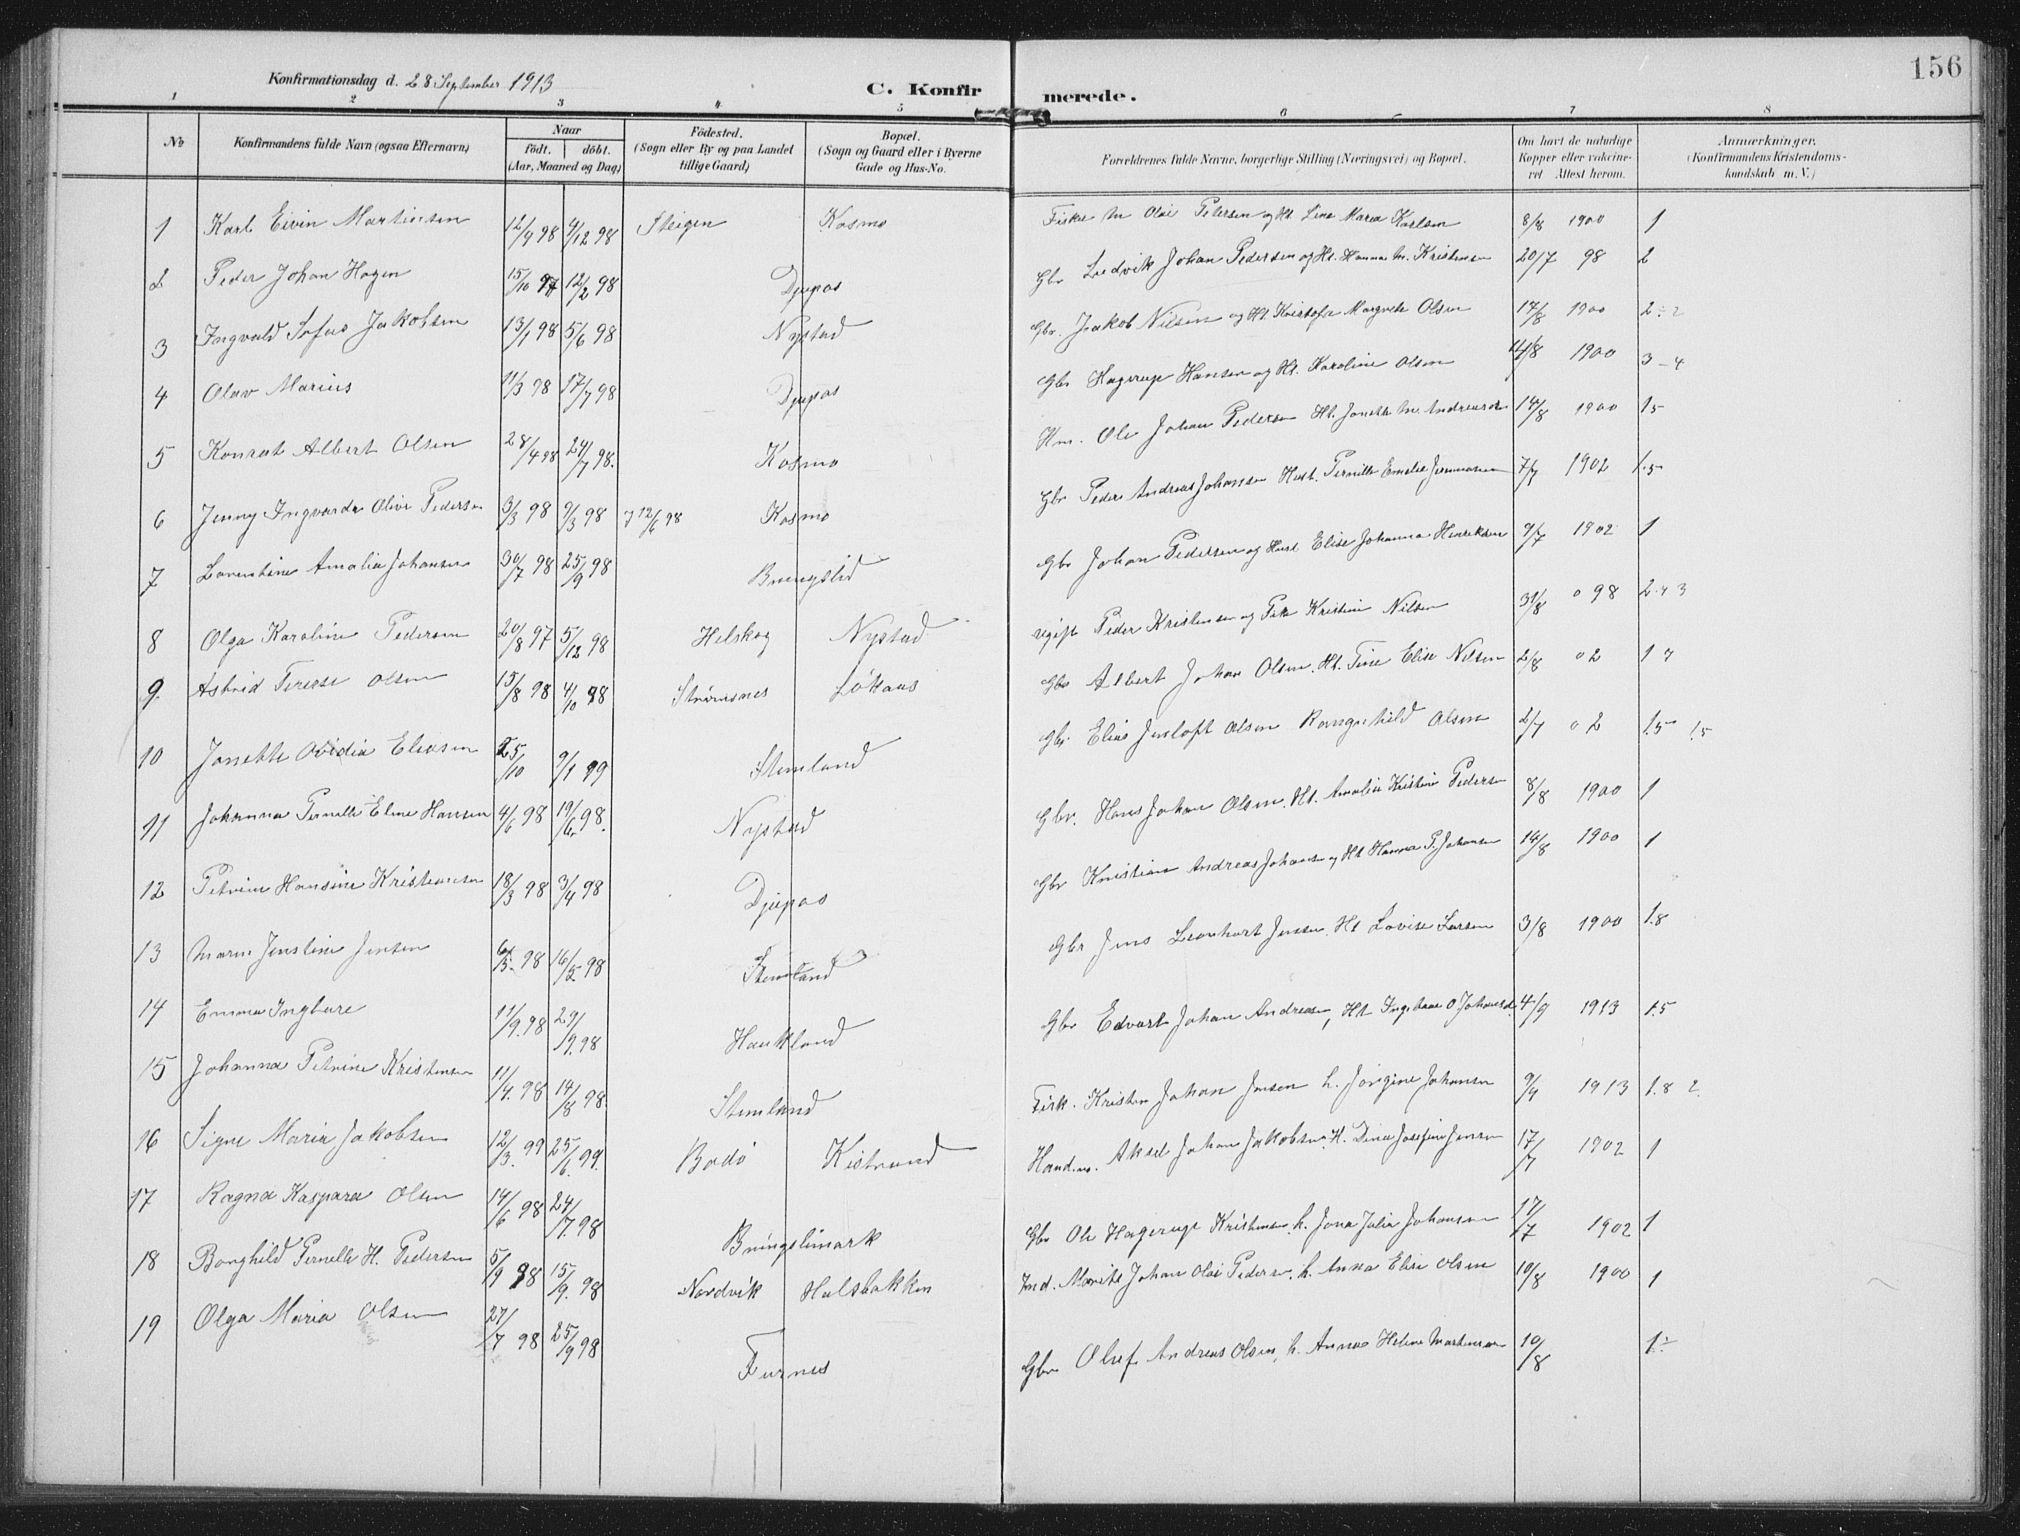 156
Konfirmationsdag d. 28 September 1913
C. Konfirmerede.
1 2 3 4 5 6 7 8
No
Konfirmandens fulde Navn (ogsaa Efternavn)
Naar
födt. döbt.
(Aar, Maaned og Dag)
Födested.
(Sogn eller By og paa Landet
tillige Gaard)
Bopæl.
(Sogn og Gaard eller i Byerne
Gade og Hus-No.
Forældrenes fulde Navne, borgerlige Stilling (Næringsvei) og Bopæl.
Om havt de naturlige
Kopper eller vakcine-
ret Attest herom.
Anmerkninger.
(Konfirmandens Kristendoms-
kundskab m. V.)
1 Karl Eivin Martinsen 12/9 98 4/12 98 Steigen Kosmo Fisker M Olai Petersen og Ht Lina Maria Karlsen 8/8 1900 1
2 Peder Johan Hagen 15/10 97 12/2 98 Djupos Gbr Ludvik Johan Pedersen og Ht. Hanna M. Kristensen 20/7 98 2
3 Ingvald Sofus Jakobsen 13/1 98 5/6 98 Nystad Gbr. Jakob Nilsen og Ht Kristofa Margrete Olsen 14/8 1900 2
4 Olav Marius 11/3 98 17/7 98 Djupos Gbr Hagerup Hansen og Ht. Karoline Olsen 14/8 1900 3-4
5 Konrat Albert Olsen 28/4 98 24/7 98. Kosmo Hm. Ole Johan Pedersen Ht. Jonette M. Andreasdr 14/8 1900 1.5
6 Jenny Ingvarda Olive Pedersen 3/3 98 9/3 98 12/6 98 Kosmo Gbr Peder Andreas Johansen Hust. Pernille Emelie 7/7 1902 1.5
7 Lorentine Amalia Johansen 30/7 98 25/9 98 Bringslid Gbr Johan Pedersen og Hust Elise Johanna Henriksen 9/7 1902 1
8 Olga Karoline Pedersen 20/8 97 5/12 98 Helskog Nystad ugift Peder Kristensen og Pike Kristine Nilsen 31/8 98
9. Astrid Terese Olsen 15/8 98 4/10 98 Strömsnes Lökaas Gbr Albert Johan Olsen. Ht. Tine Elise Nilsen 2/8 02 1
10 Jonette Ovidia Eliasen 25/10 9/1 99 Stemland Gbr Elias Jenloft Olsen Rangnhild Olsen 2/7 02 1.5 1.5
11 Johanna Pernelle Eline Hansen 4/6 98 19/6 98. Nystad Gbr. Hans Johan Olsen. Ht. Amalia Kristine Pedersen 8/8 1900 1
12 Petrine Hansine Kristiansen 18/3 98 3/4 98 Djupos Gbr Kristian Andreas Johansen og Ht Hanna P. Johansen 14/8 1900 1
13 Maren Jenstine Jensen 98 16/5 98 Stemland Gbr Jens Leonhart Jensen. Ht Lovise Larsen 3/8 1900 1.8
14 Emma Ingbare 11/9.98 29/9.98 Haukland Gbr Edvart Johan Andreasen, Ht Ingebare O Johansd. 4/9 1913 1.5
15 Johanna Petrine Kristensen 11/4. 98 14/8 98. Stemland Fisk. Kristen Johan Jensen h. Jörgine Johansen 9/9 1913 1.8 2.
16 Signe Maria Jakobsen 12/3. 99 25/6. 99. Bodö Kistrand Handm. Aksel Johan Jakobsen. H. Dina Josefine Jensen 17/7 1902 1
17 Ragna Kaspara Olsen 14/6 98 24/7. 98 Bringslimark Gbr Ole Hagerup Kristensen h. Jona Julia Johansen 17/7 1902 1
18 Borghild Pernelle H. Pedersen 5/9 98 15/9. 98 Nordvik Halsbakken Ind. Morits Johan Olai Pedersen. h. Anna Elise Olsen 10/8 1900 1
19 Olga Maria Olsen 27/7 98 25/9 98 Furnes Gbr Oluf Andreas Olsen, h. Anna Heline Martinsen 10/8 1